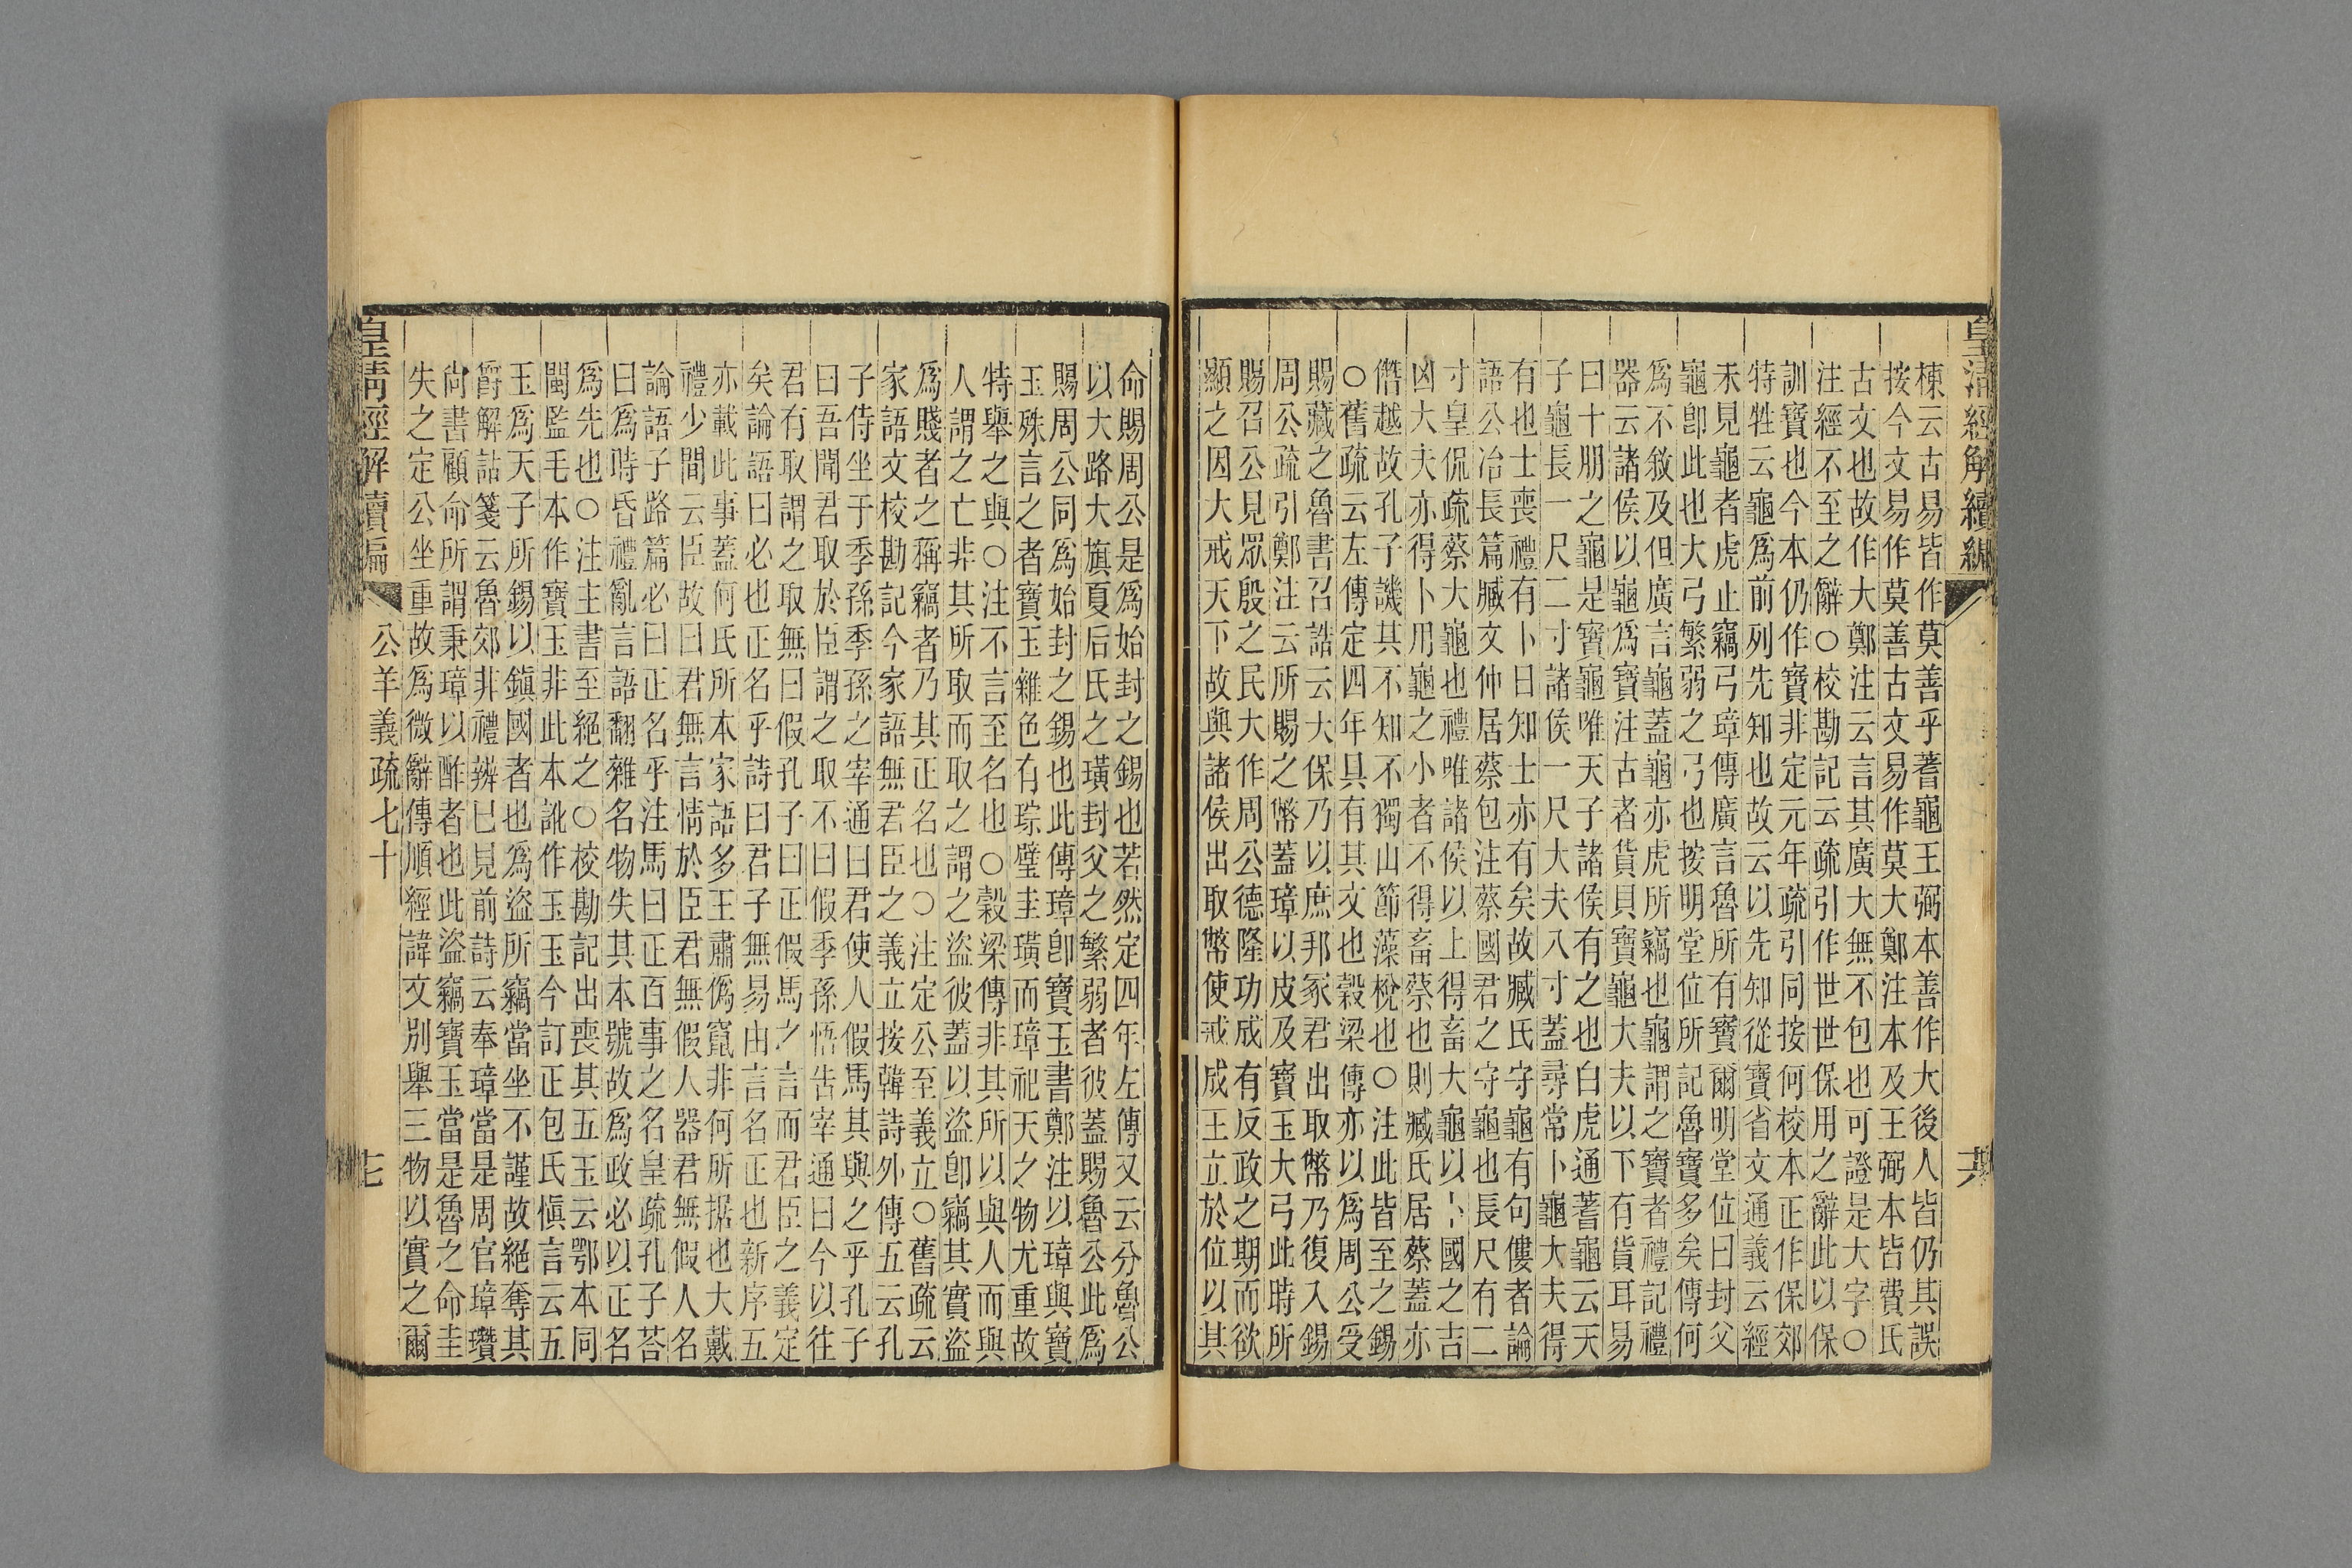 皇清經解續編
棟云古易皆作莫善乎蓍龜王弼本善作大後人皆仍其誤
按今文易作莫善古文易作莫大鄭注本及王弼本皆費氏
古文也故作大鄭注云言其廣大無不包也可證是大字○
注經不至之辭○校勘記云疏引作世世保用之辭此以保
訓寶也今本仍作寶非定元年疏引同按何校本正作保郊
特牲云龜爲前列先知也故云以先知從寶省文通義云經
未見龜者虎止竊弓璋傳廣言魯所有寶爾明堂位曰封父
龜卽此也大弓繁弱之弓也按明堂位所記魯寶多矣傳何
爲不敘及但廣言龜蓋龜亦虎所竊也龜謂之寶者禮記禮
器云諸侯以龜爲寶注古者貨貝寶龜大夫以下有貨耳易
曰十朋之龜是寶龜唯天子諸侯有之也白虎通蓍龜云天
子龜長一尺二寸諸侯一尺大夫八寸蓋尋常卜龜大夫得
有也士喪禮有卜日知士亦有矣故臧氏守龜有句僂者論
語公冶長篇臧文仲居蔡包注蔡國君之守龜也長尺有二
寸皇侃疏蔡大龜也禮唯諸侯以上得畜大龜以卜國之吉
凶大夫亦得卜用龜之小者不得畜蔡也則臧氏居蔡蓋亦
僭越故孔子譏其不知不獨山節藻梲也○注此皆至之錫
○舊疏云左傳定四年具有其文也穀梁傳亦以爲周公受
賜藏之魯書召誥云大保乃以庶邦冢君出取幣乃復入錫
周公疏引鄭注云所賜之幣蓋璋以皮及寶玉大弓此時所
賜召公見眾殷之民大作周公德隆功成有反政之期而欲
顯之因大戒天下故與諸侯出取幣使戒成王立於位以其
命賜周公是爲始封之錫也若然定四年左傳又云分魯公
以大路大旗夏后氏之璜封父之繁弱者彼蓋賜魯公此爲
賜周公同爲始封之錫也此傳璋卽寶玉書鄭注以璋與寶
玉殊言之者寶玉雜色有琮璧圭璜而璋祀天之物尤重故
特舉之與○注不言至名也○穀梁傳非其所以與人而與
人謂之亡非其所取而取之謂之盜彼蓋以盜卽竊其實盜
爲賤者之稱竊者乃其正名也○注定公至義立○舊疏云
家語文校勘記今家語無君臣之義立按韓詩外傳五云孔
子侍坐于季孫季孫之宰通曰君使人假馬其與之乎孔子
曰吾聞君取於臣謂之取不曰假季孫悟告宰通曰今以往
君有取謂之取無曰假孔子曰正假馬之言而君臣之義定
矣論語曰必也正名乎詩曰君子無易由言名正也新序五
亦載此事蓋何氏所本家語多王肅僞竄非何所據也大戴
禮少間云臣故曰君無言情於臣君無假人器君無假人名
論語子路篇必曰正名乎注馬曰正百事之名皇疏孔子荅
曰爲時昏禮亂言語翻雜名物失其本號故爲政必以正名
爲先也○注主書至絕之○校勘記出喪其五玉云鄂本同
閩監毛本作寶玉非此本訛作玉玉今訂正包氏愼言云五
玉爲天子所錫以鎭國者也爲盜所竊當坐不謹故絕奪其
爵解詁箋云魯郊非禮辨巳見前詩云奉璋當是周官璋瓚
尙書顧命所謂秉璋以酢者也此盜竊寶玉當是魯之命圭
失之定公坐重故爲微辭傳順經諱文別舉三物以實之爾
皇清經解續編 公羊義疏七十